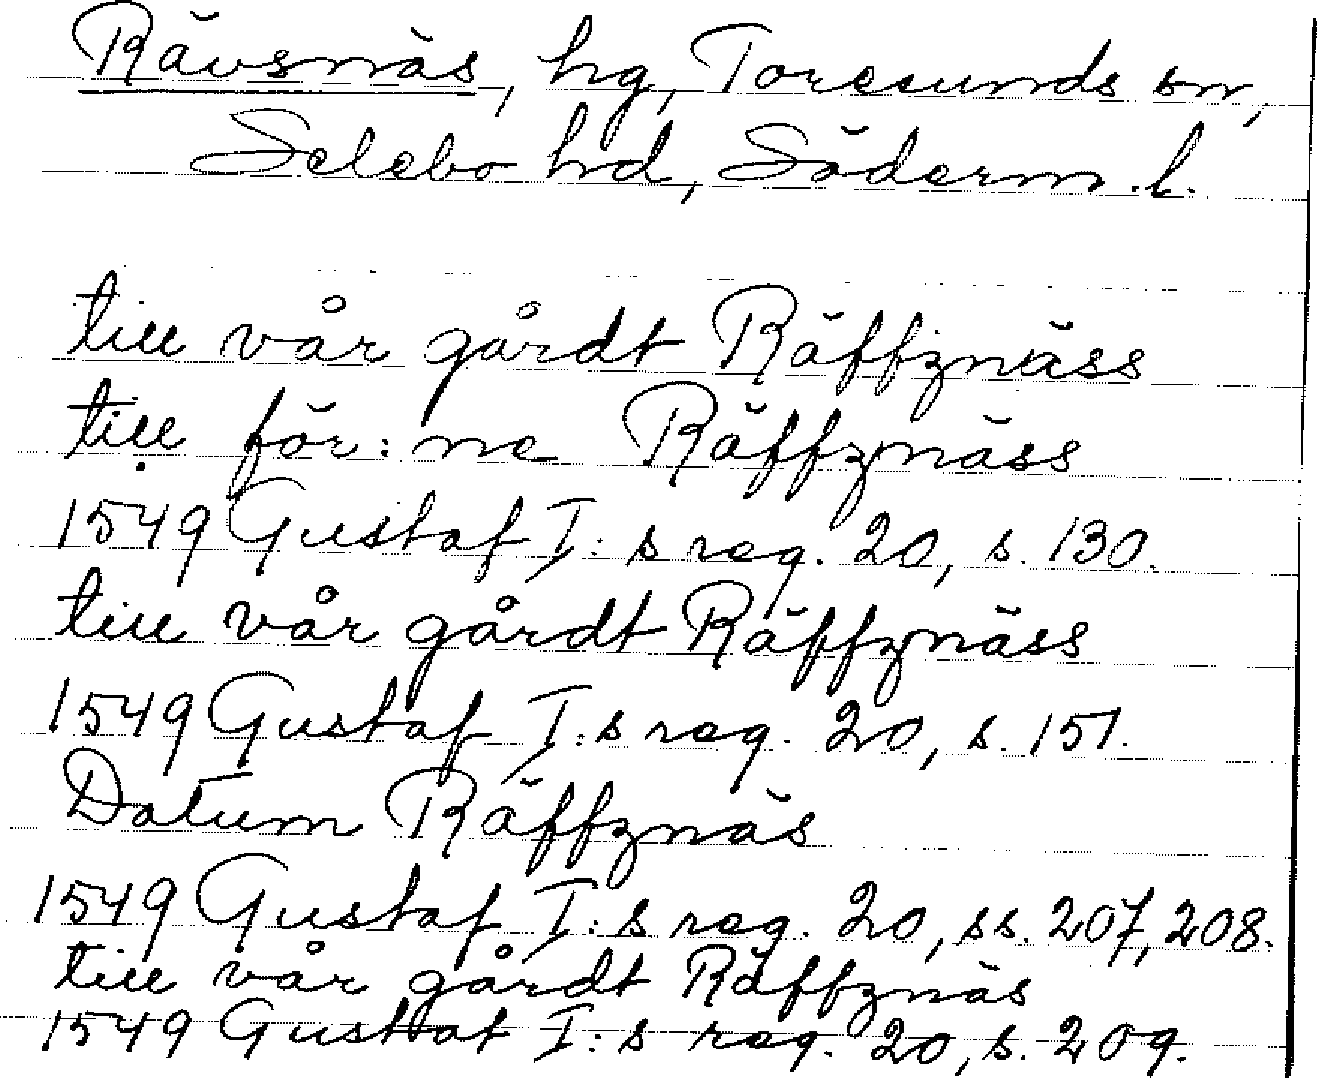 Rävsnäs, hg, Toresunds sn,
Selebo hd, Söderm. l.
till vår gårdt Räffznäss
till för:ne Räffznäss
1549 Gustaf I:s reg. 20, s. 130.
till vår gårdt Räffznäss
1549 Gustaf I:s reg. 20, s. 151.
Datum Räffznäs
1549 Gustaf I:s reg. 20, ss. 207, 208.
till vår gårdt Räffznäs
1549 Gustaf I:s reg. 20, s. 209.